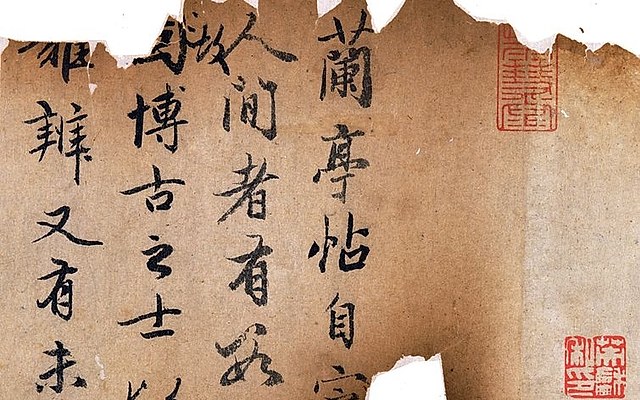 蘭亭帖自
人間者有數
故博古之士以
難辨又有未